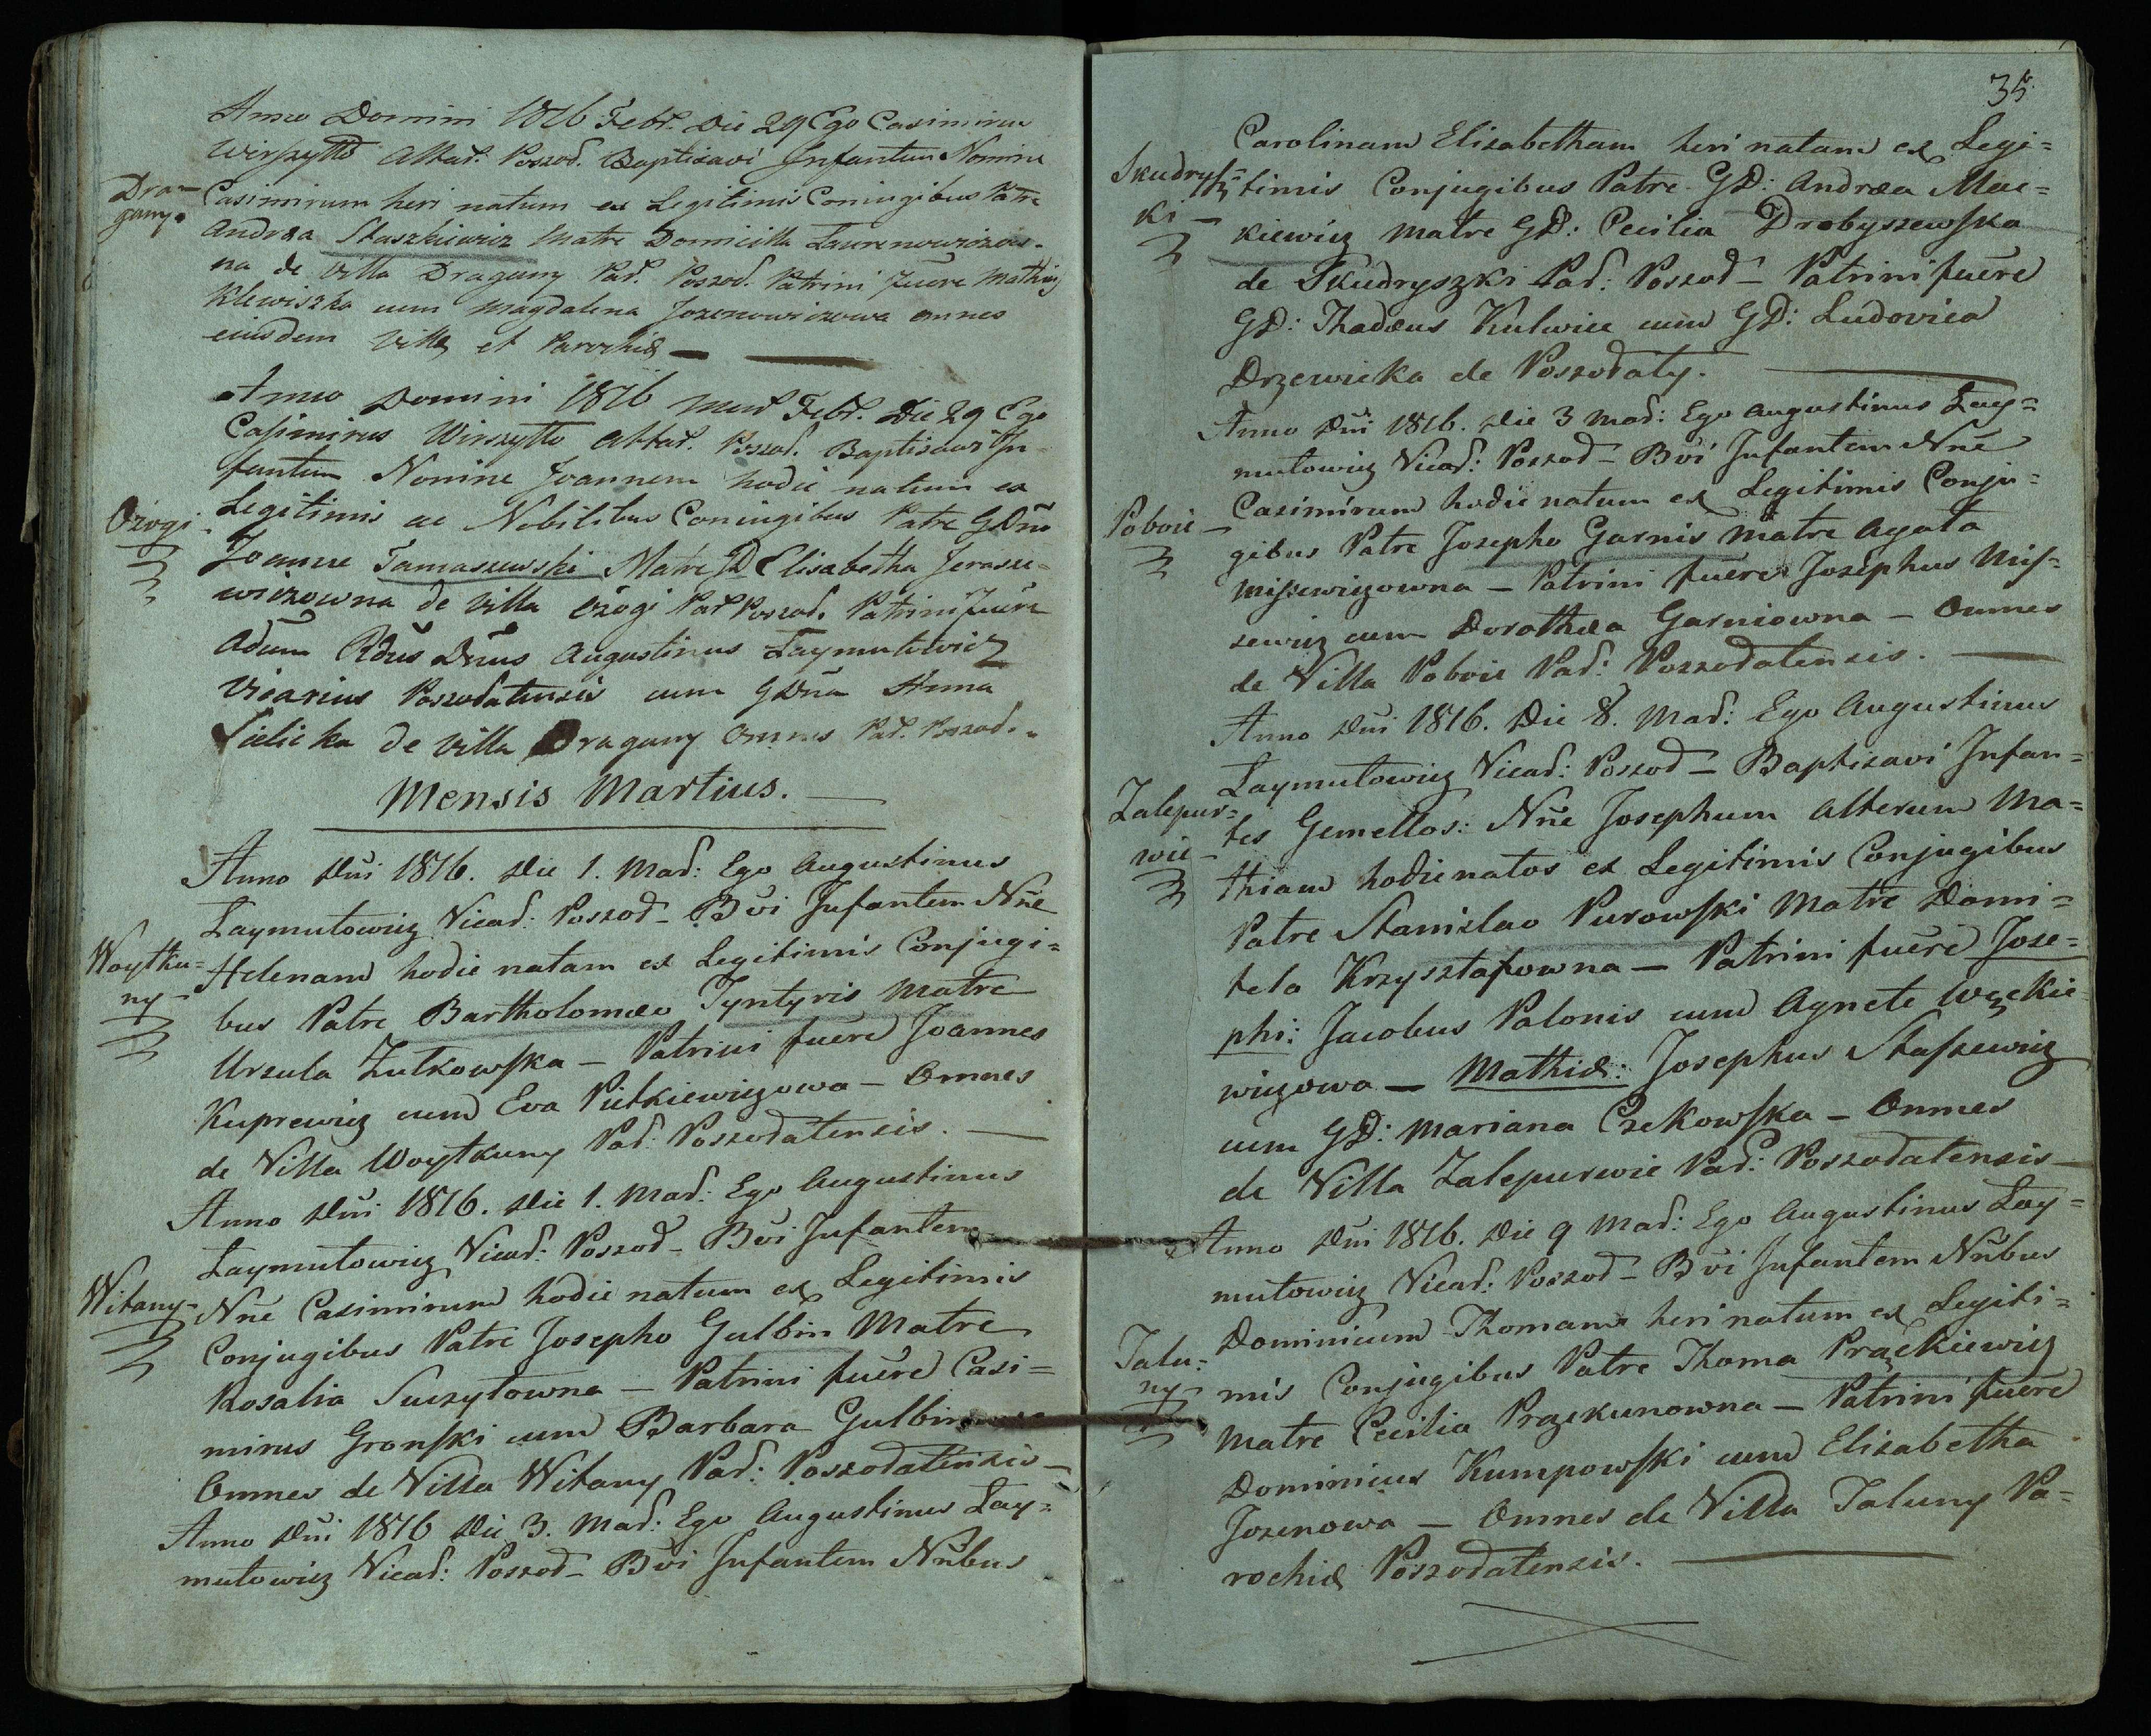 Anno Domini 1816 Febr. Die 29 Ego Casimirus
Wirszyłło Altar. Poszod. Baptisavi Infantem Nomine
Dra-
gany.
Casimirum heri natum ex Legitimis Coniugibus Patre
Andræa Staszkiewicz Matre Domicilla Laurenowiczow-
na de Villa Dragany Par. Poszod. Patrini fuere Mathias
Klewiszka cum Magdalena Jozenowiczowa omnes
eiusdem Villæ et Parochiæ —
Anno Domini 1816 Mens Febr. Die 29 Ego
Casimirus Wirszyłło Altar. Poszod. Baptisavi In
fantem Nomine Joannem hodie natum ex
Ożogi
Legitimis ac Nobilibus Coniugibus Patre GDño
Joanne Tamaszewski Matre GD Elisabetha Jerasze-
wiczowna de Villa Ożogi Par Poszod. Patrini fuere
Adum Rdus Dnus Augustinus Łaymutowicz
Vicarius Poszodatensis cum GDña Anna
Sielicka de Villa Dragany Omnes Par. Poszod.
Mensis Martius. —
Anno Dñi 1816. Die 1. Mar: Ego Augustinus
Łaymutowicz Vicar: Poszod — Bvi Infantem Nñe
Woytku=
ny —
Helenam hodie natam ex Legitimis Conjugi=
bus Patre Bartholomæo Tyntyris Matre
Ursula Zutkowska — Patrini fuere Joannes
Kuprewicz cum Eva Pietkiewiczowa — Omnes
de Villa Woytkuny Par: Poszodatensis. —
Anno Dñi 1816. Die 1. Mar: Ego Augustinus
Łaymutowicz Vicar: Poszod — Bvi Infantem
Witany —
Nñe Casimirum hodie natum ex Legitimis
Conjugibus Patre Josepho Gulbin Matre
Rosalia Suczyłowna — Patrini fuere Casi=
mirus Gronski cum Barbara
Omnes de Villa Witany Par: Poszodatensis —
Anno Dñi 1816 Die 3. Mar: Ego Augustinus Łay=
mutowicz Vicar: Poszod — Bvi Infantem Nñbus
35
Carolinam Elisabetham heri natam ex Legi=
Skudrysz=
ki —
timis Conjugibus Patre GD: Andræa Mac=
kiewicz Matre GD: Cecilia Drobyszewska
de Skudryszki Par: Poszod — Patrini fuere
GD: Thadæus Kulwiec cum GD: Ludovica
Drzewicka de Poszodaty. —
Anno Dñi 1816. Die 3 Mar: Ego Augustinus Łay=
mutowicz Vicar: Poszod — Bvi Infantem Nñe
Poboie —
Casimirum hodie natum ex Legitimis Conju=
gibus Patre Josepho Garnis Matre Agata
Miszewiczowna — Patrini fuere Josephus Mis=
zewicz cum Dorothæa Garniowna — Omnes
de Villa Poboie Par: Poszodatensis. —
Anno Dñi 1816. Die 8. Mar: Ego Augustinus
Łaymutowicz Vicar: Poszod — Baptizavi Infan=
Zalepur=
wie —
tes Gemellos: Nñe Josephum alterum Ma=
thiam hodie natos ex Legitimis Conjugibus
Patre Stanislao Purowski Matre Domi=
tela Krzysztafowna — Patrini fuere Jose=
phi: Jacobus Palonis cum Agnete Węckie
wiczowa — Mathiæ: Josephus Staszewicz
cum GD: Mariana Czekowska — Omnes
de Villa Zalepurwie Par: Poszodatensis —
Anno Dñi 1816. Die 9 Mar: Ego Augustinus Łay=
mutowicz Vicar: Poszod — Bvi Infantem Nñbus
Dominicum Thomam heri natum ex Legiti=
Taluny
mis Conjugibus Patre Thoma Prąckiewicz
Matre Cecilia Przekunowna — Patrini fuere
Dominicus Kumpowski cum Elisabetha
Jozenowa — Omnes de Villa Taluny Pa=
rochiæ Poszodatensis. —